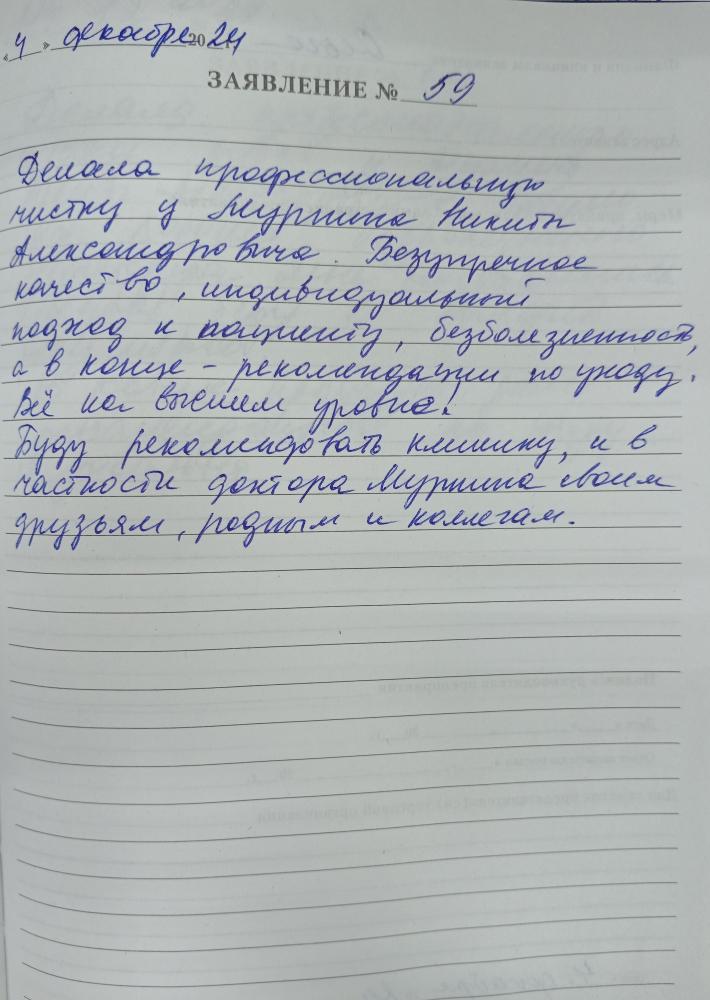 «4» декабря 2024 г.
ЗАЯВЛЕНИЕ № 59
Делала профессиональную
чистку у Мурнина Никиты
Александровича. Безупречное
качество, индивидуальный
подход к пациенту, безболезненность,
а в конце – рекомендации по уходу.
Всё на высшем уровне!
Буду рекомендовать клинику, и в
частности доктора Мурнина своим
друзьям, родным и коллегам.